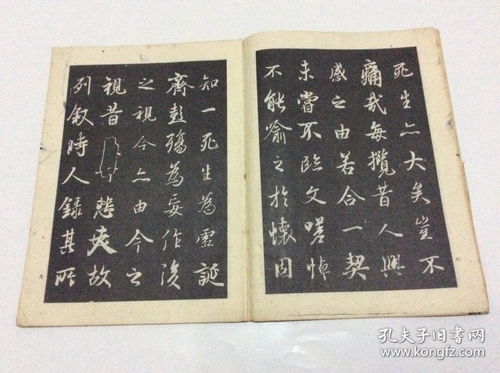 死生亦大矣豈不
痛哉每攬昔人興
感之由若合一契
未嘗不臨文嗟悼
不能喻之於懷固
知一死生為虛誕
齊彭殤為妄作後
之視今亦由今之
視昔悲夫故
列叙時人錄其所
孔夫子旧书网
www.kongfz.com